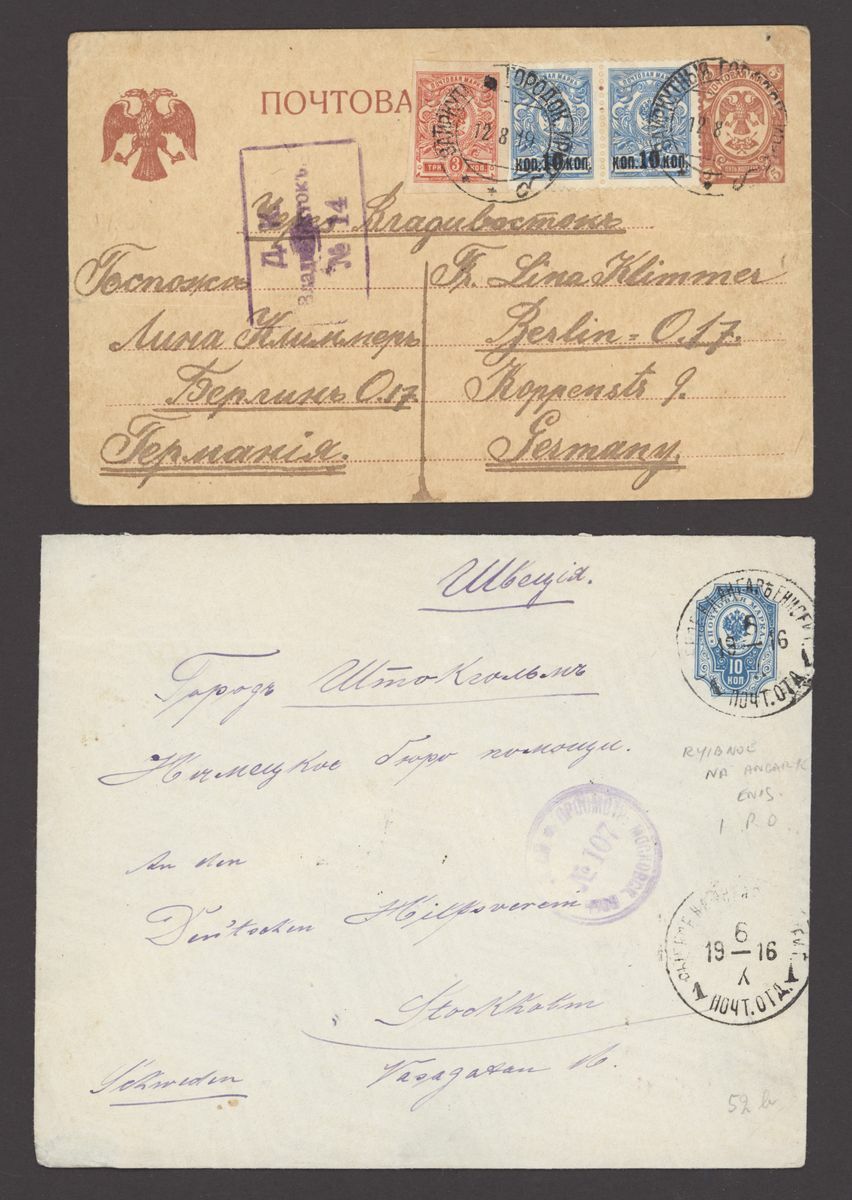 ПОЧТОВА
ПОЧТОВАЯ МАРКА
ТРИ 3 КОП
КОП. 10 КОП.
КОП. 10 КОП.
5 5
ГОРОДОК
12 8 19
12 8
Д. К.
Владивостокъ
№ 14
Черезъ Владивостокъ
Госпожа
Лина Климмеръ
Берлинъ O.17.
Германія.
Fr. Lina Klimmer
Berlin = O.17.
Koppenstr 9.
Germany.
Швеція.
ПОЧТОВАЯ МАРКА
10
КОП
6
19 — 16
1 ПОЧТ. ОТД. 1
Городъ Штокгольмъ
Нѣмецкое бюро помощи.
RYIBNOE
NA ANGARYE
ENIS.
1 P.O
МОСКОВСК
№ 107
An den
Deutschen Hilfsverein
6
19 — 16
X
1 ПОЧТ. ОТД. 1
Stockholm
Schweden
Vasagatan
52 b